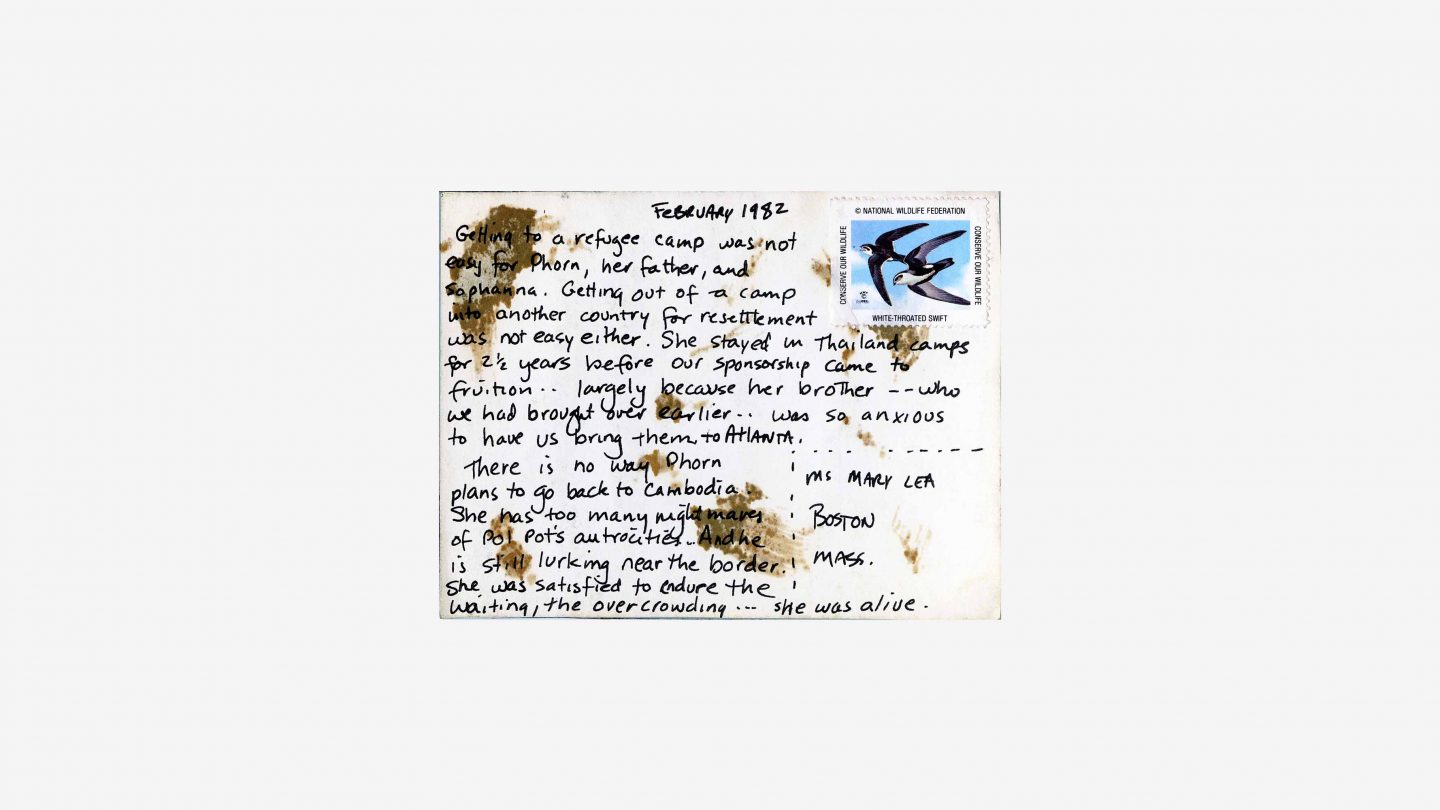 FEBRUARY 1982
Getting to a refugee camp was not
easy for Phorn, her father, and
Sophanna. Getting out of a camp
into another country for resettlement
was not easy either. She stayed in Thailand camps
for 2½ years before our sponsorship came to
fruition .. largely because her brother -- who
we had brought over earlier .. was so anxious
to have us bring them to ATLANTA.
There is no way Phorn
plans to go back to Cambodia.
She has too many nightmares
of Pol Pot's autrocities... And he
is still lurking near the border.
She was satisfied to endure the
waiting, the overcrowding --- she was alive.
© NATIONAL WILDLIFE FEDERATION
CONSERVE OUR WILDLIFE
CONSERVE OUR WILDLIFE
WHITE-THROATED SWIFT
MS MARY LEA
BOSTON
MASS.